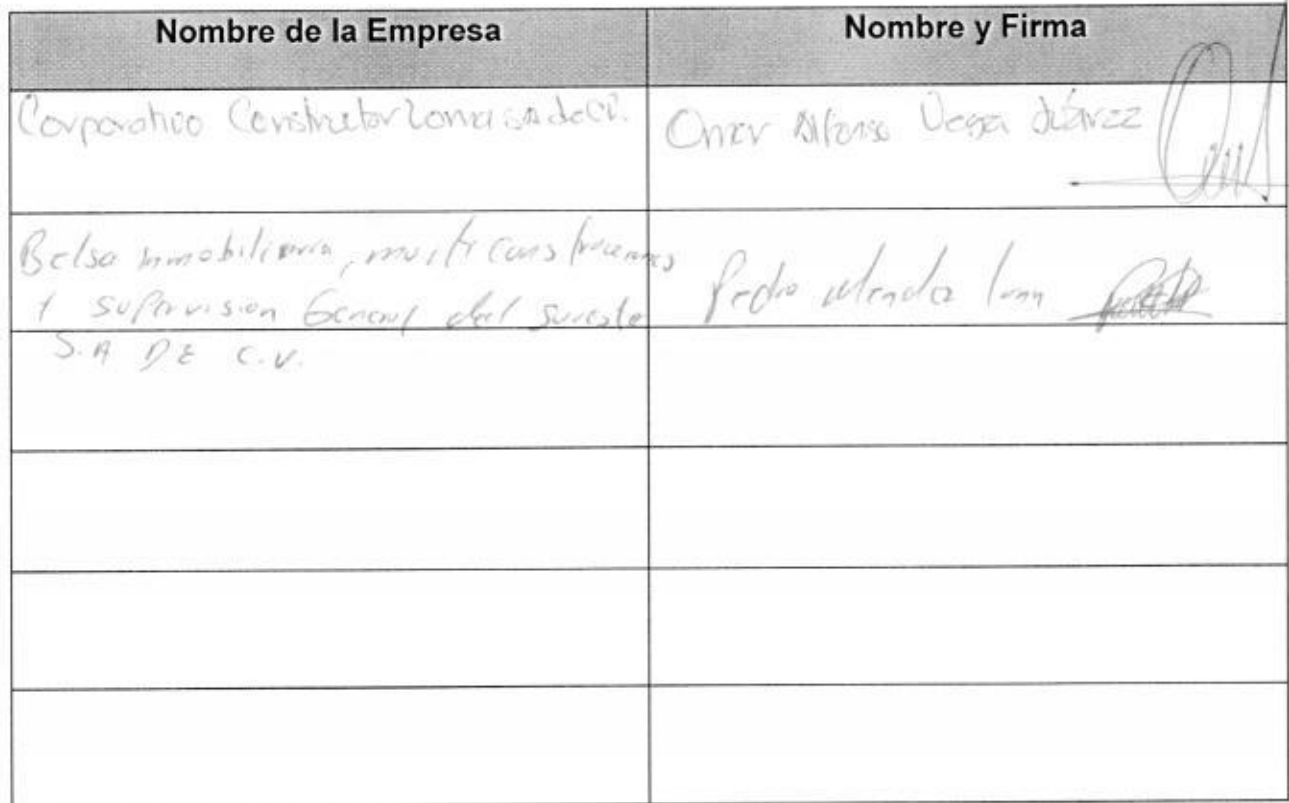 Nombre de la Empresa
Nombre y Firma
Corporativo Constructor Loma SA de CV.
Omar Alfonso Vega Juárez
Belsa inmobiliaria, multiconstrucciones
Pedro Mendez
y supervision General del sureste
S.A DE C.V.